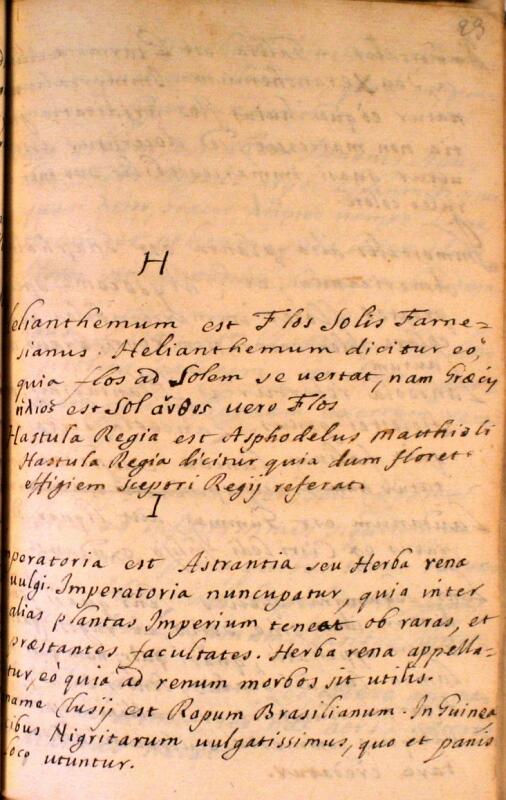 23
H
elianthemum est Flos Solis Farne=
sianus. Helianthemum dicitur eò,
quia flos ad Solem se vertat, nam Græcis
ἥλιος est Sol ἄνθος vero Flos
Hastula Regia est Asphodelus matthioli
Hastula Regia dicitur quia dum floret
effigiem sceptri Regij referat.
I
peratoria est Astrantia seu Herba rena
vulgi. Imperatoria nuncupatur, quia inter
alias plantas Imperium teneat ob raras, et
præstantes facultates. Herba rena appella=
tur, eò quia ad renum morbos sit utilis.
name Clusij est Rapum Brasilianum. In Guinea
cibus Nigritarum vulgatissimus, quo et panis
loco utuntur.